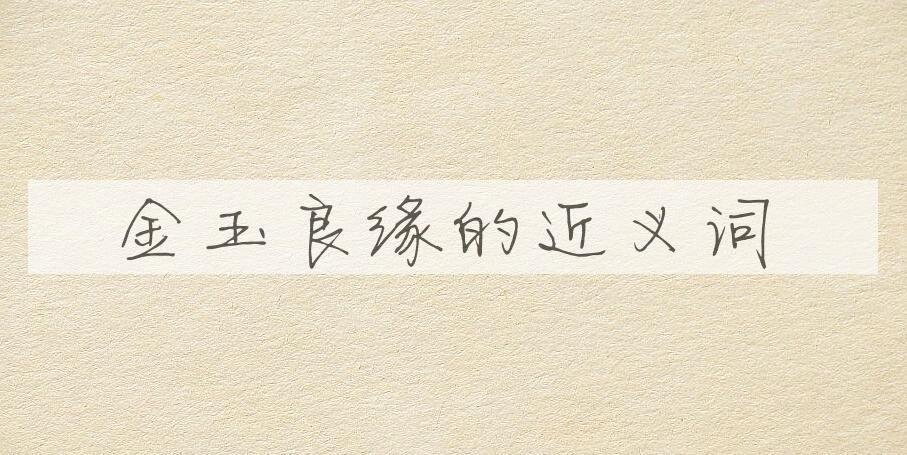 金玉良缘的近义词